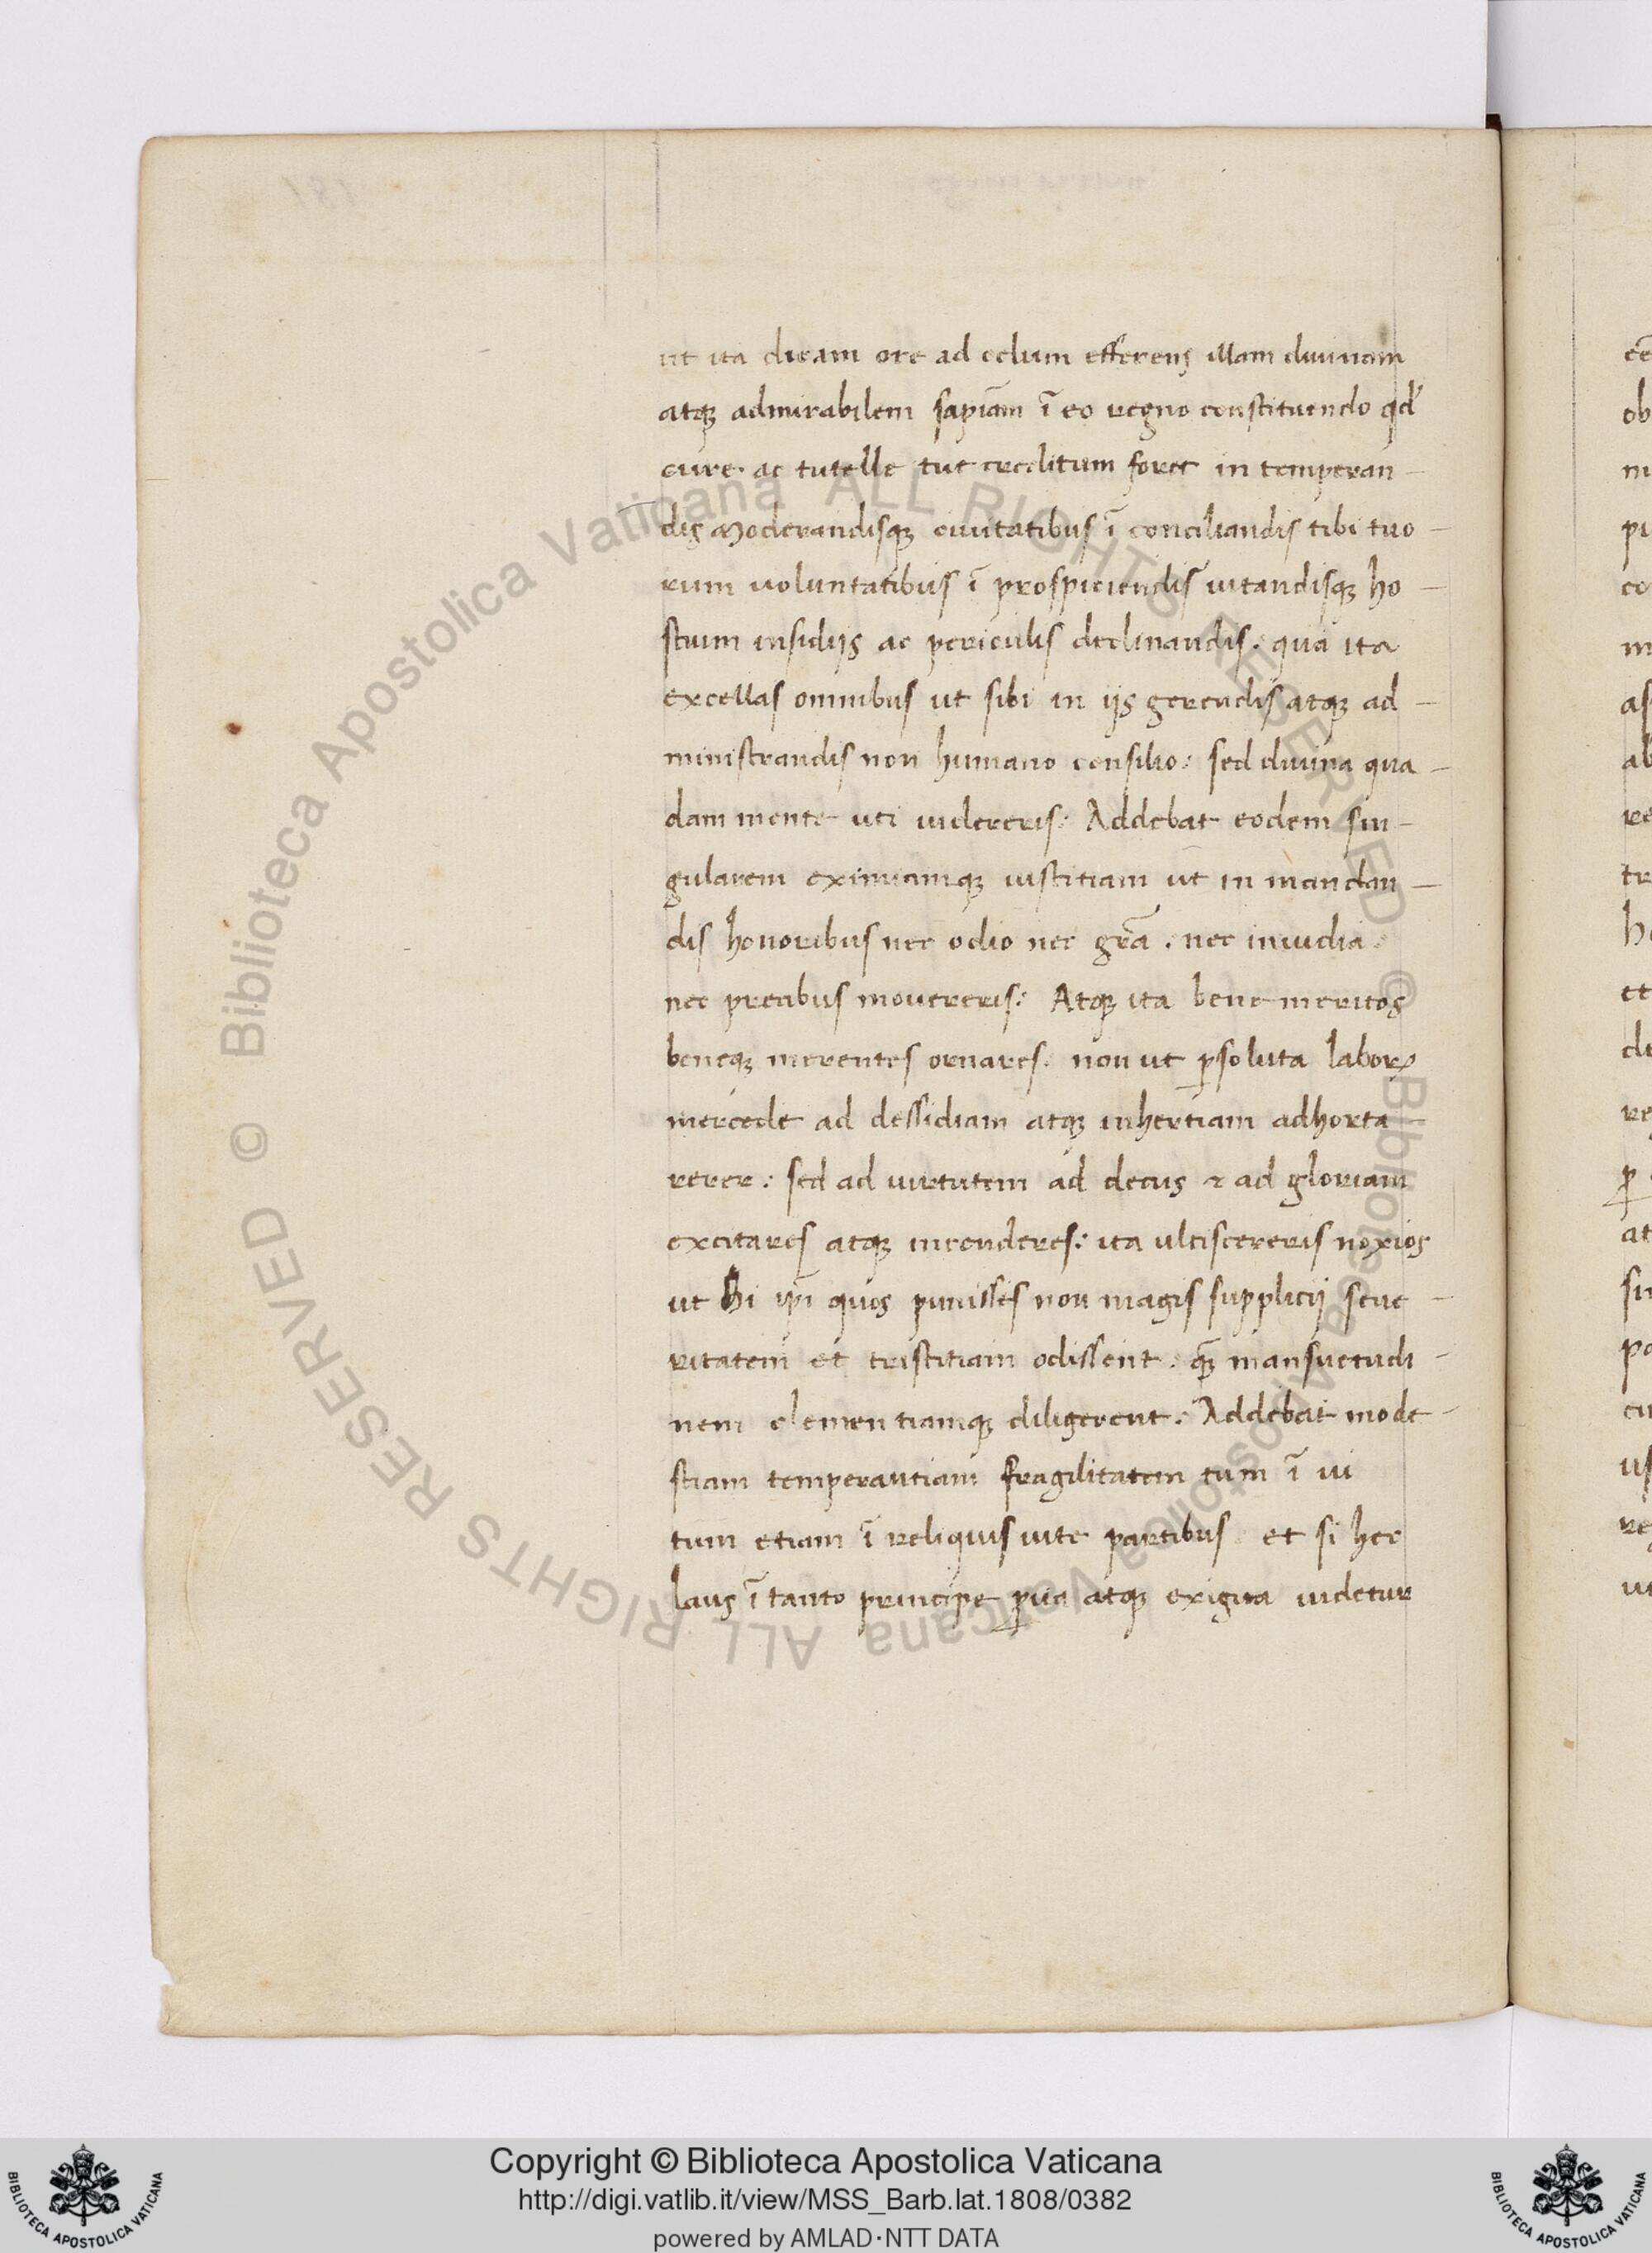 ut ita dicam ore ad celum efferens illam diuinam
atqȝ admirabilem sapiam̄ ī eo regno constituendo qd̛
cure ac tutelle tue creditum foret in temperan-
dis Moderandisqȝ ciuitatibus ī conciliandis tibi tuo-
rum uoluntatibus ī prospiciendis uitandisqȝ ho-
stium insidijs ac periculis declinandis. qua ita
excellas omnibus ut sibi in ijs gerendis atqȝ ad-
ministrandis non humano consilio: sed diuina qua-
dam mente uti uidereris: Addebat eodem sin-
gularem eximiamqȝ iustitiam ut in mandan-
dis honoribus nec odio nec grā. nec inuidia.
nec precibus mouereris: Atqȝ ita bene meritos
beneqȝ merentes ornares. non ut ꝑsoluta laboꝝ
mercede ad dessidiam atqȝ inhertiam adhorta
rerer: sed ad uirtutem ad decus ⁊ ad gloriam
excitares atqȝ incenderes: ita ulciscereris noxios
ut Hi ipī quos punisses non magis supplicij seue-
ritatem et tristitiam odissent. qꝫ̄ mansuetudi-
nem clementiamqȝ diligerent. Addebat mode-
stiam temperantiam fragilitatem tum ī ui
tum etiam ī reliquis uite partibus et si hec
laus ī tanto principe ꝑua atqȝ exigua uidetur
Copyright © Biblioteca Apostolica Vaticana
http://digi.vatlib.it/view/MSS_Barb.lat.1808/0382
powered by AMLAD·NTT DATA